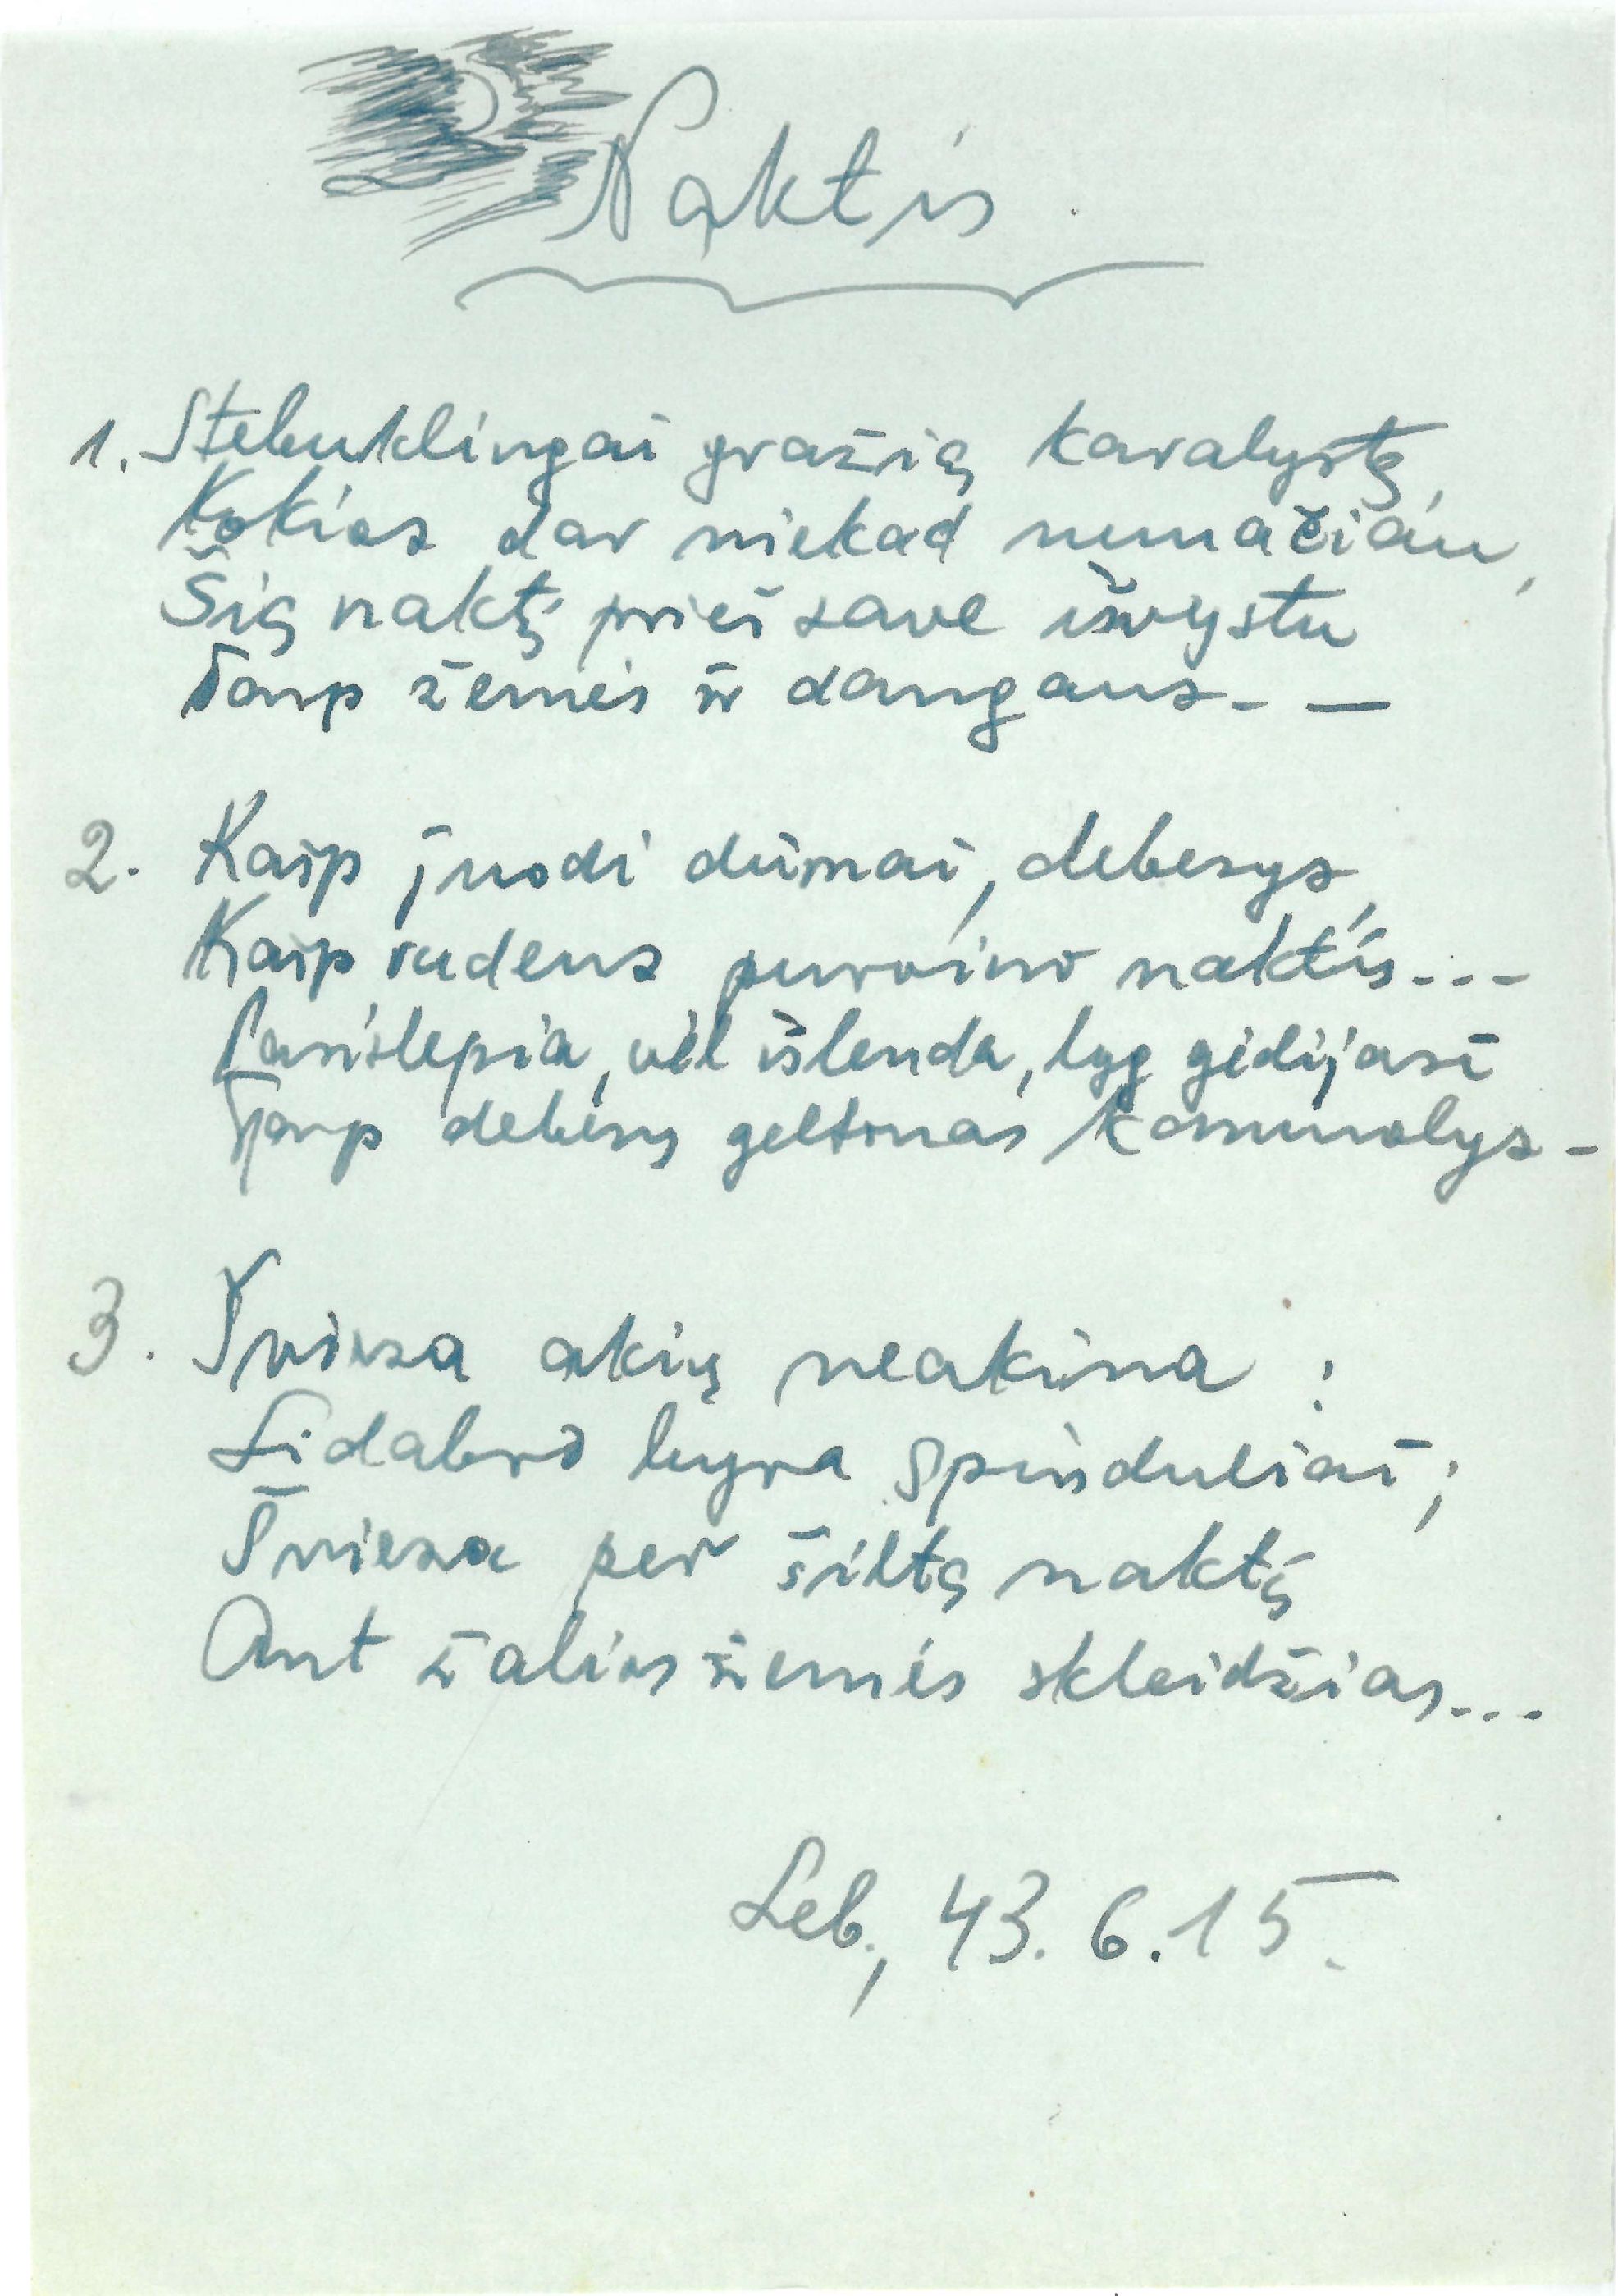 Naktis.
1. Stebuklingai gražią karalystę,
Kokios dar niekad nemačiau,
Šią naktį prieš save išvystu
Tarp žemės ir dangaus - —
2. Kaip juodi dūmai, debesys,
Kaip rudens purvino naktis...
Pasislepia, vėl išlenda, lyg gėdijasi
Tarp debesų geltonas kamuolys -
3. Šviesa akių neakina:
Sidabro lyra spinduliai;
Šviesa per šiltą naktį
Ant žalios žemės skleidžias...
Leb., 43. 6. 15.